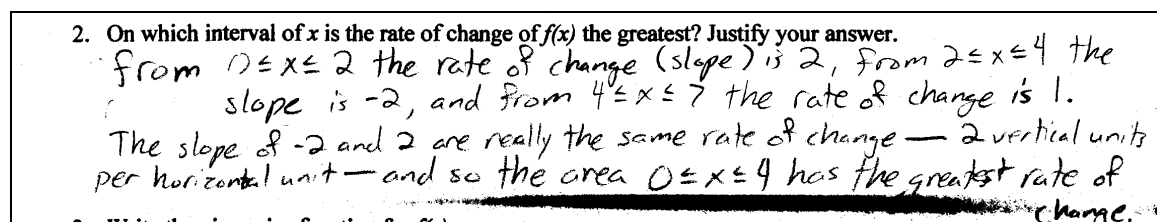 2. On which interval of x is the rate of change of f(x) the greatest? Justify your answer.
from 0 ≤ x ≤ 2 the rate of change (slope) is 2, from 2 ≤ x ≤ 4 the
slope is -2, and from 4 ≤ x ≤ 7 the rate of change is 1.
The slope of -2 and 2 are really the same rate of change — 2 vertical units
per horizontal unit — and so the area 0 ≤ x ≤ 4 has the greatest rate of
change.